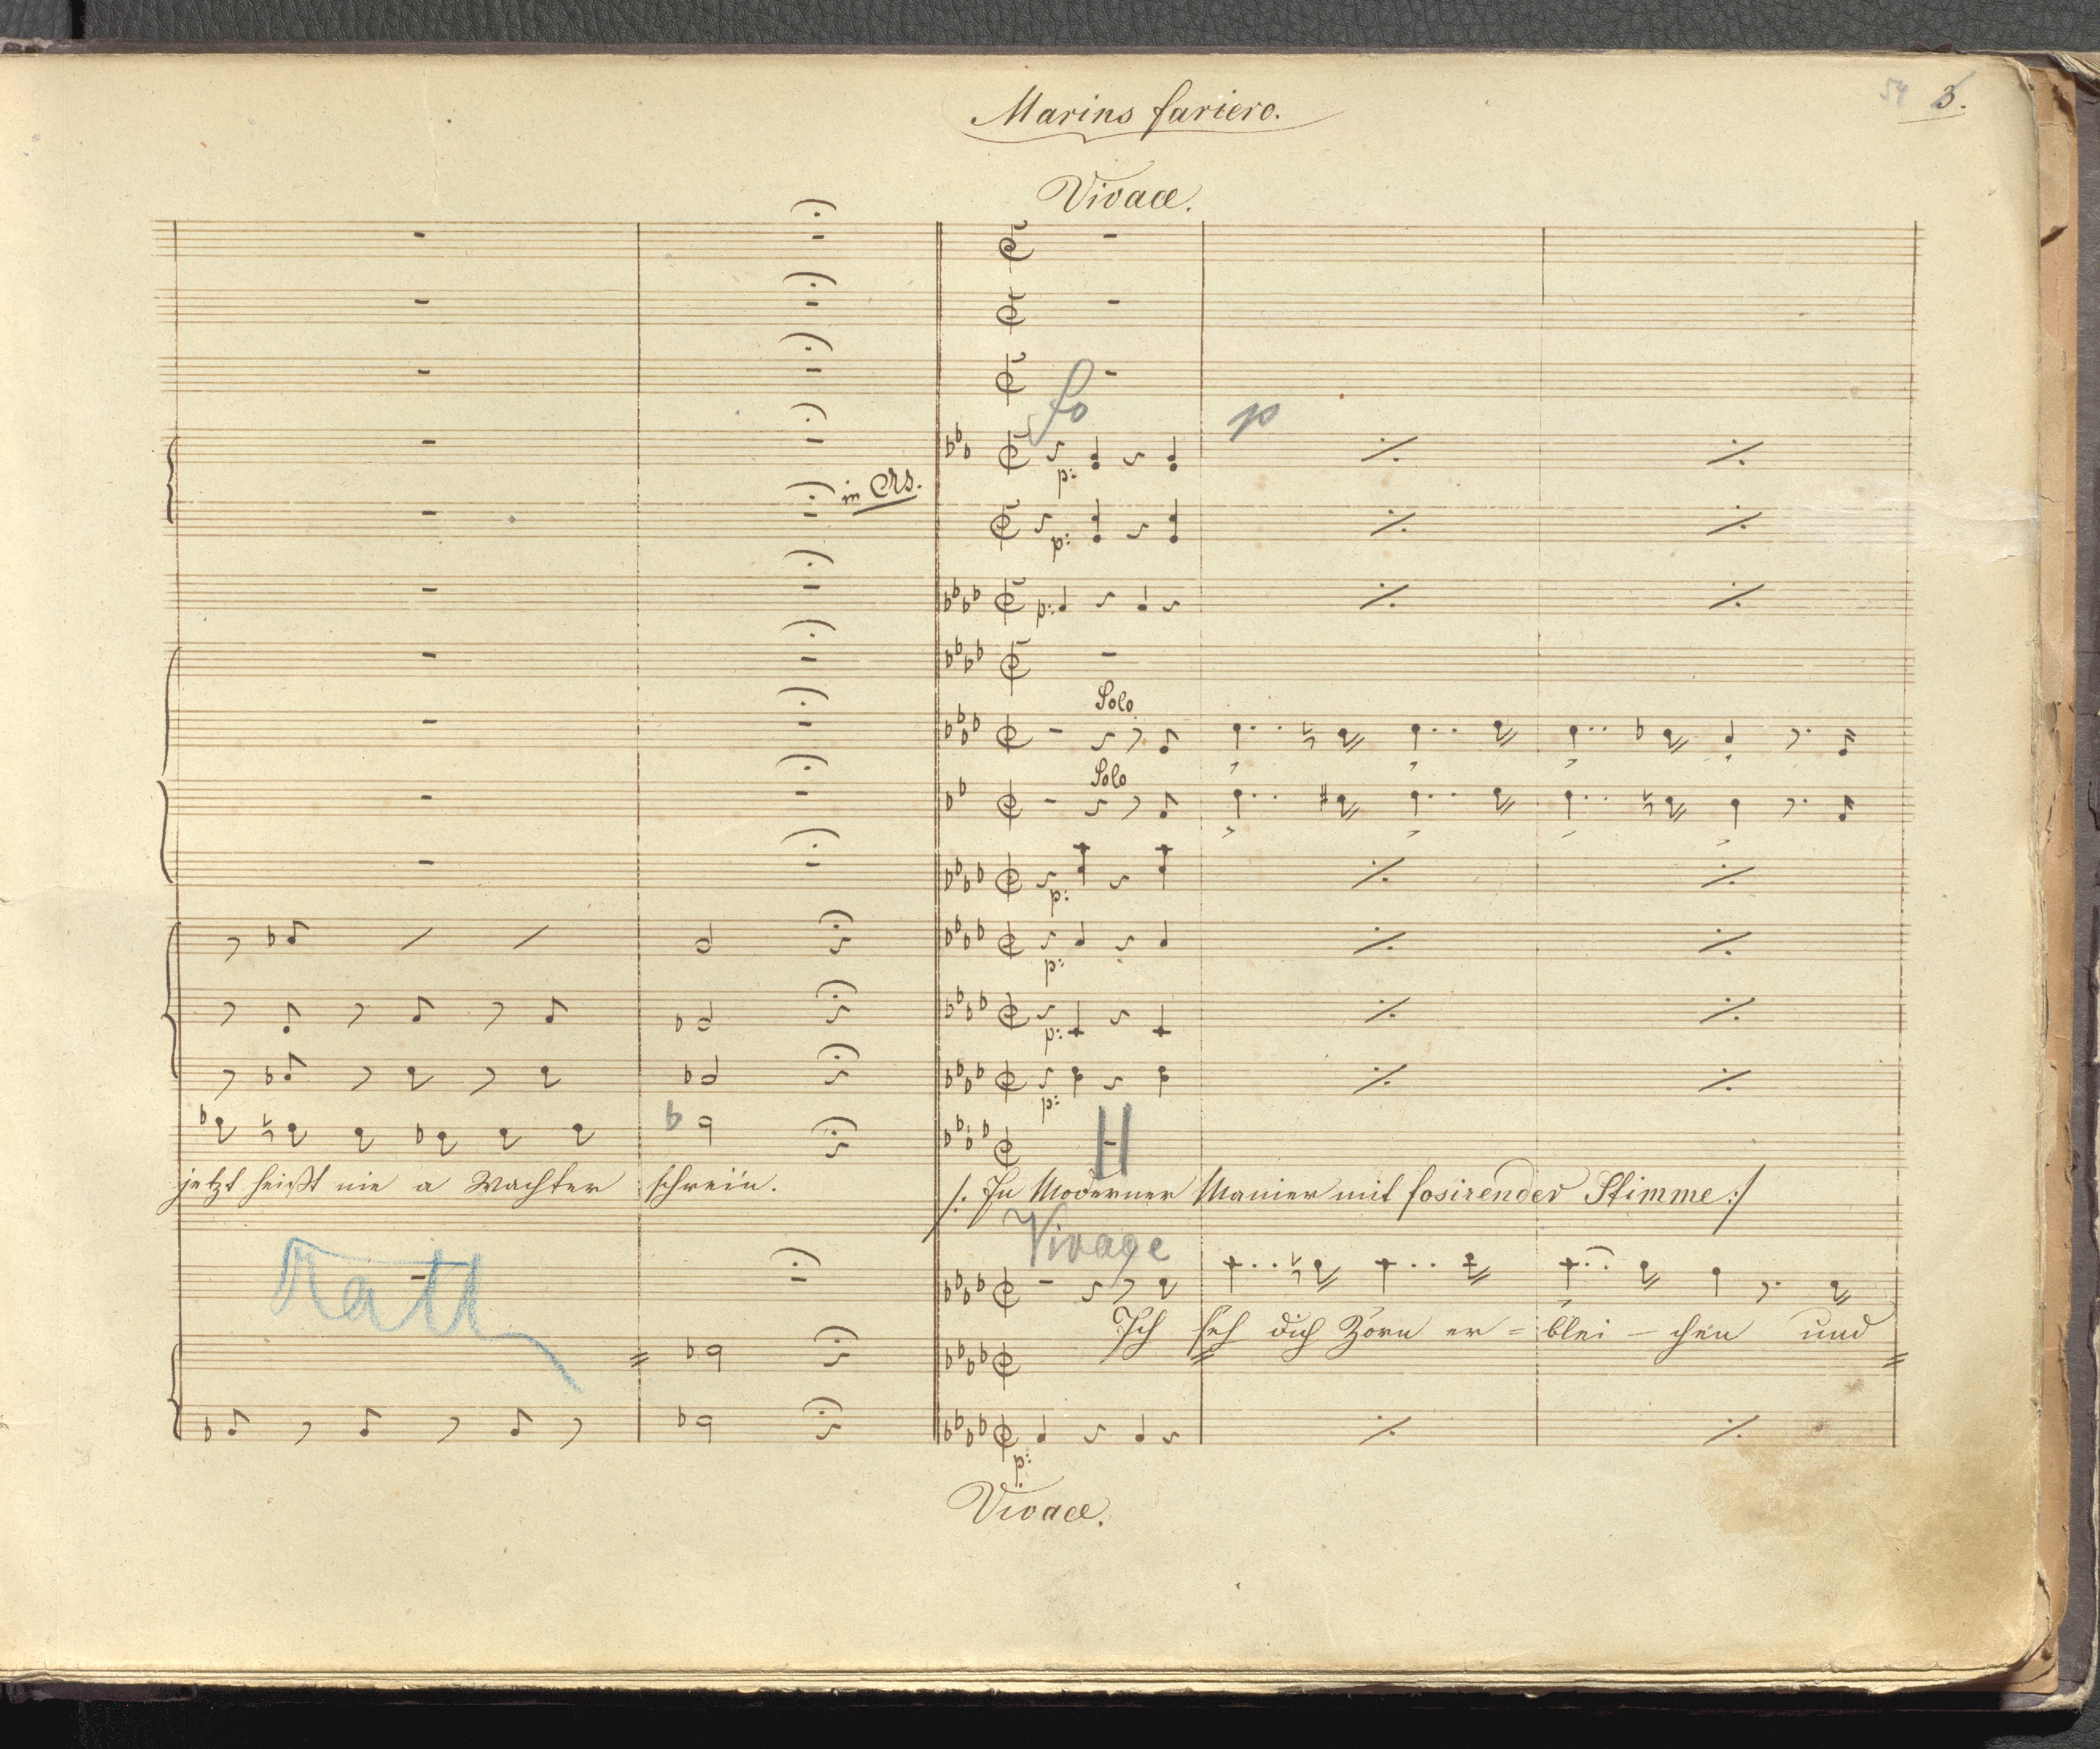 Marins fariero.
54 3.
Vivace.
fo p
p:
in As.
p:
p:
Solo
Solo
p:
p:
p:
p:
jetzt heißt nie a Wachter schrein.
/: In Moderner Manier mit fosirender Stimme :/
Vivace
Ich seh dich Zorn er - blei - chen und
p:
Vivace.